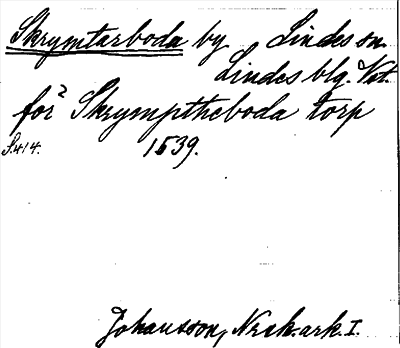 Skrymtarboda by Lindes sn.
Lindes blg. Vst.
for² Skrymptheboda torp
S. 414. 1539.
Johansson, Nerk. ark. I.